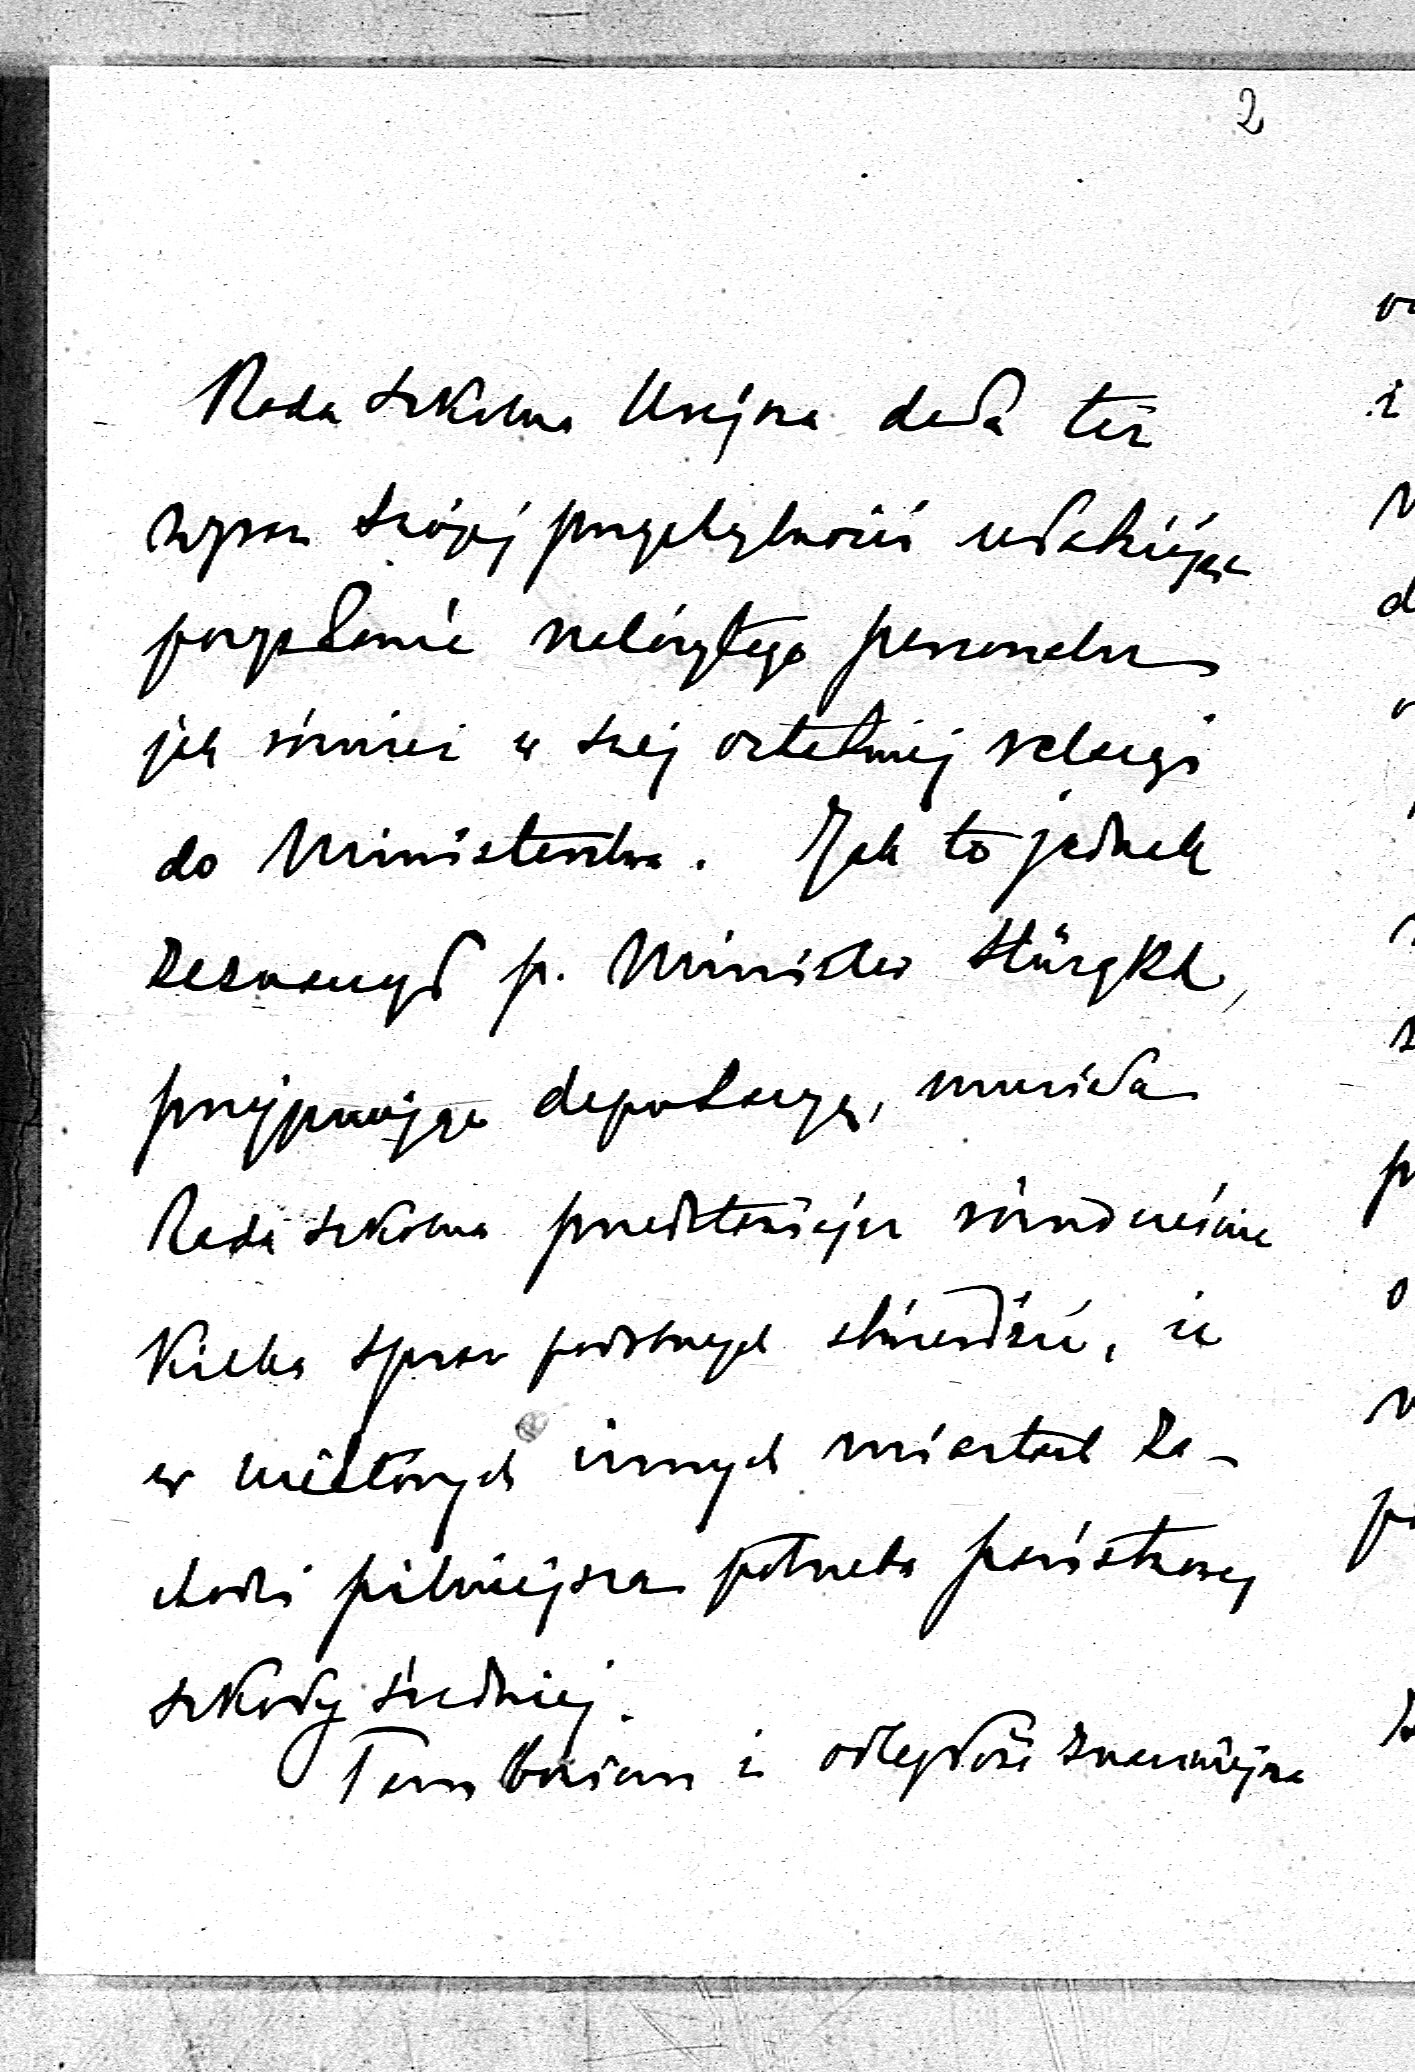 2
Rada szkolna krajowa dała też
wyraz swojej przychylności ułatwiając
pozyskanie należytego personelu
jak również w swej ostatniej relacyi
do Ministerstwa. Jak to jednak
zaznaczył p. Minister Stürgkh,
przyjmując deputacyę, musiała
Rada szkolna przedstawiając równocześnie
kilka spraw podobnych stwierdzić, że
w niektórych innych miastach za-
chodzi pilniejsza potrzeba państwowej
szkoły średniej.
Tam bowiem i odległość znaczniejsza